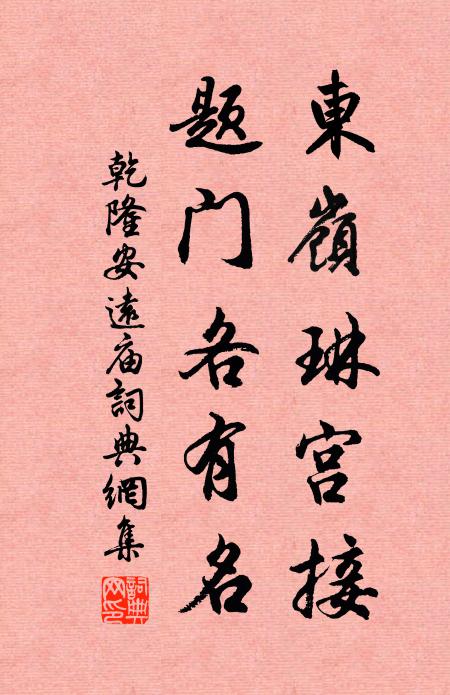 東嶺琳宫接
题门各有名
乾隆安遠庙詞典網集
詞典网印